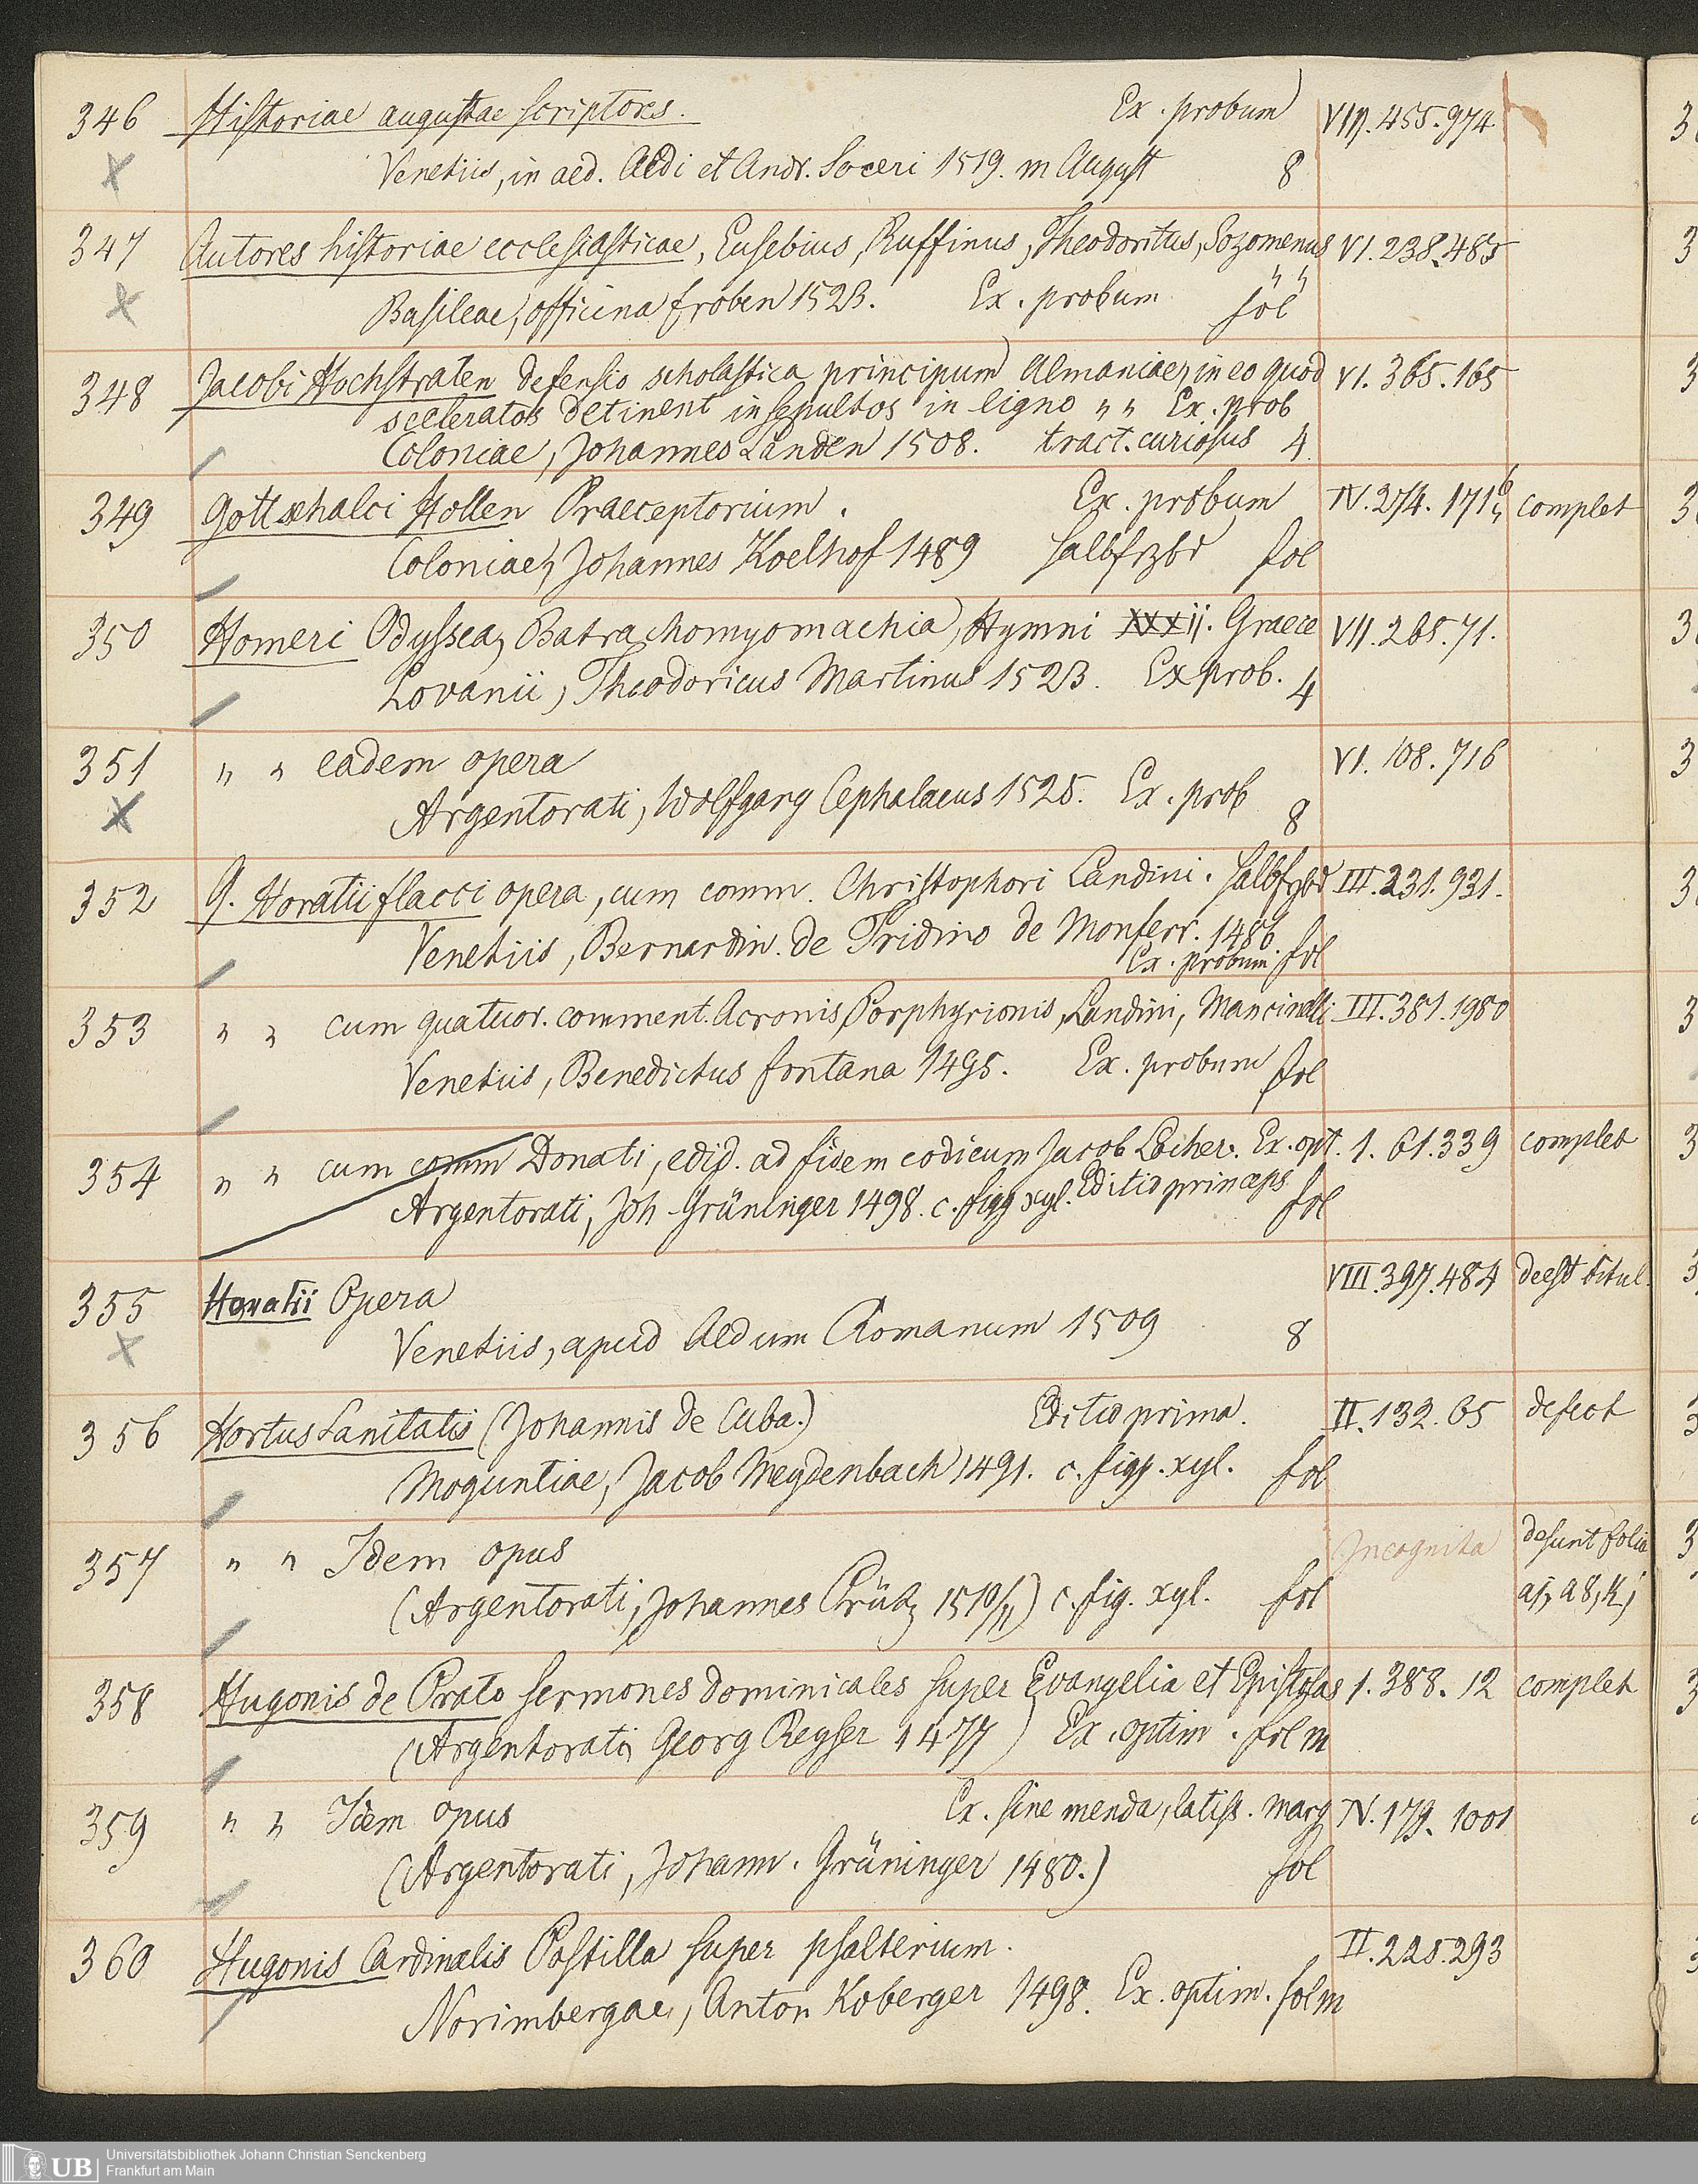 346 Historiae augustae scriptores. Ex. probum VIII.455.974
Venetiis, in aed. Aldi et Andr. Soceri 1519. m August 8
347 Autores historiae ecclesiasticae, Eusebius, Ruffinus, Theodoritus, Sozomenus VI.238.485
Basileae, officina froben 1523. Ex. probum fol
348 Jacobi Hochstraten defensio scholastica principum Almaniae, in eo quod VI.365.165
sceleratos detinent insepultos in ligno " " Ex. prob
Coloniae, Johannes Landen 1508. tract. curiosus 4
349 Gottschalci Hollen Praeceptorium. Ex. probum IV.274.171 complet
Coloniae, Johannes Koelhof 1489 halbfrzbd fol
350 Homeri Odyssea, Batrachomyomachia, Hymni XXXII. Graece VII.265.71.
Lovanii, Theodoricus Martinus 1523. Ex prob. 4
351 " " eadem opera VI.108.716
Argentorati, Wolfgang Cephalaeus 1525. Ex. prob 8
352 Q. Horatii flacci opera, cum comm. Christophori Landini. halbfrzbd III.231.931.
Venetiis, Bernardin. de Tridino de Monferr. 1486. fol
Ex. probum
353 " " cum quatuor. comment. Acronis, Porphyrionis, Landini, Mancinelli III.381.1980
Venetiis, Benedictus fontana 1495. Ex. probum fol
354 " " cum comm Donati, edid. ad fidem codicum Jacob Locher. Ex. opt. 1.61.339 complet
Argentorati, Joh Grüninger 1498. c. figg xyl. Editio princeps fol
355 Horatii Opera VIII.397.484 deest titul.
Venetiis, apud Aldum Romanum 1509 8
356 Hortus Sanitatis (Johannis de Cuba.) Editio prima. II.132.65 defect
Moguntiae, Jacob Meydenbach 1491. c. figg. xyl. fol
357 " " Idem opus Incognita desunt folia
(Argentorati, Johannes Prütz 1510/11) c. fig. xyl. fol a1, a8, k1
358 Hugonis de Prato Sermones dominicales super Evangelia et Epistolas 1.388.12 complet
(Argentorati, Georg Reyser 1477) Ex. optim. fol m
359 " " Idem opus Ex. sine menda, latiss. marg IV.179.1001
(Argentorati, Johann. Grüninger 1480.) fol
360 Hugonis Cardinalis Postilla super psalterium. II.225.293
Norimbergae, Anton Koberger 1498. Ex. optim. fol m
UB Universitätsbibliothek Johann Christian Senckenberg
Frankfurt am Main